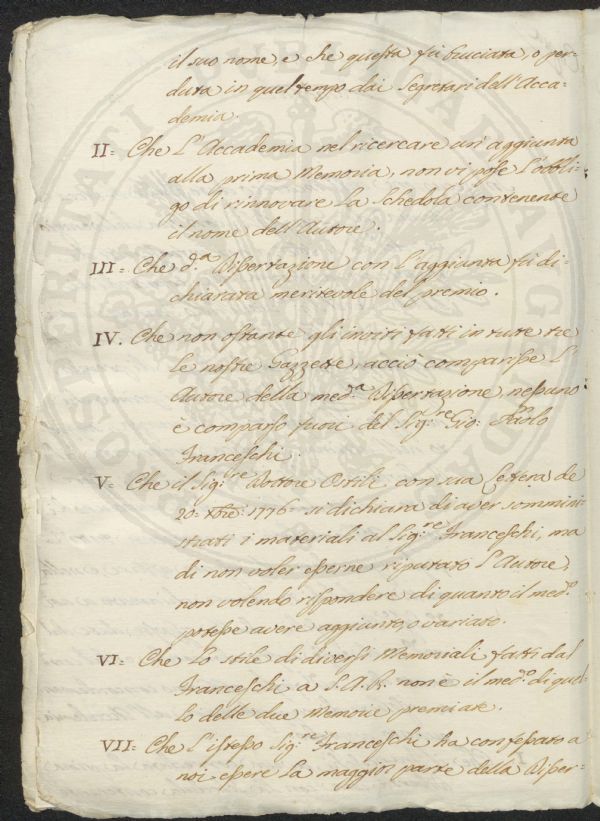 il suo nome, e che questa fu bruciata, o per-
duta in quel tempo dai Segretari dell'Acca-
demia.
II= Che L'Accademia nel ricercare un'aggiunta
alla prima Memoria, non vi pose l'obbli-
go di rinnovare la Schedola contenente
il nome dell'Autore.
III= Che d.ª Dissertazione con l'aggiunta fu di-
chiarata meritevole del premio.
IV. Che non ostante gli inviti fatti in tutte tre
le nostre Gazzette, acciò comparisse L'
Autore della med.ª Dissertazione, nessuno
è comparso fuori del Sig:re Gio: Paolo
Franceschi.
V= Che il Sig:re Dottore Ostili con sua Lettera de
20= Xbre: 1776= si dichiara di aver sommini-
strati i materiali al Sig:re Franceschi, ma
di non voler esserne riputato l'Autore,
non volendo rispondere di quanto il med.º
potesse avere aggiunto, o variato.
VI= Che lo stile di diversi Memoriali fatti dal
Franceschi a S.A.R. non è il med.º di quel-
lo delle due Memorie premiate.
VII= Che L'istesso Sig:re Franceschi ha confessato a
noi essere la maggior parte della Disser-
PROSPERITATI PUBLICAE AUGENDAE